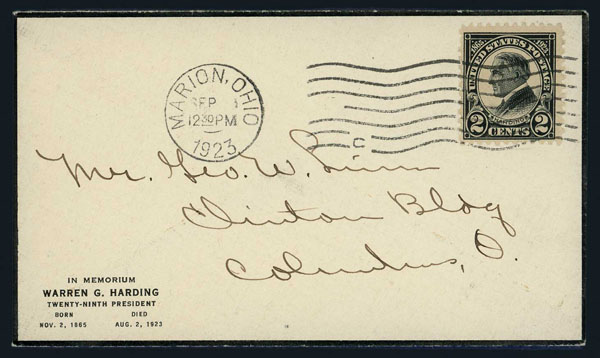 1865 1923
UNITED STATES POSTAGE
HARDING
2 CENTS 2
MARION, OHIO
SEP
12 30 PM
1923
C
Mr. Geo. W. Linn
Clinton Bldg
Columbus, O.
IN MEMORIUM
WARREN G. HARDING
TWENTY-NINTH PRESIDENT
BORN DIED
NOV. 2, 1865 AUG. 2, 1923